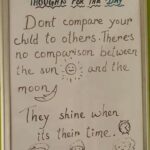 THOUGHT FOR THE DAY
Dont compare your
child to others. Theres
no comparison between
the sun and the
moon
They shine when
its their time.